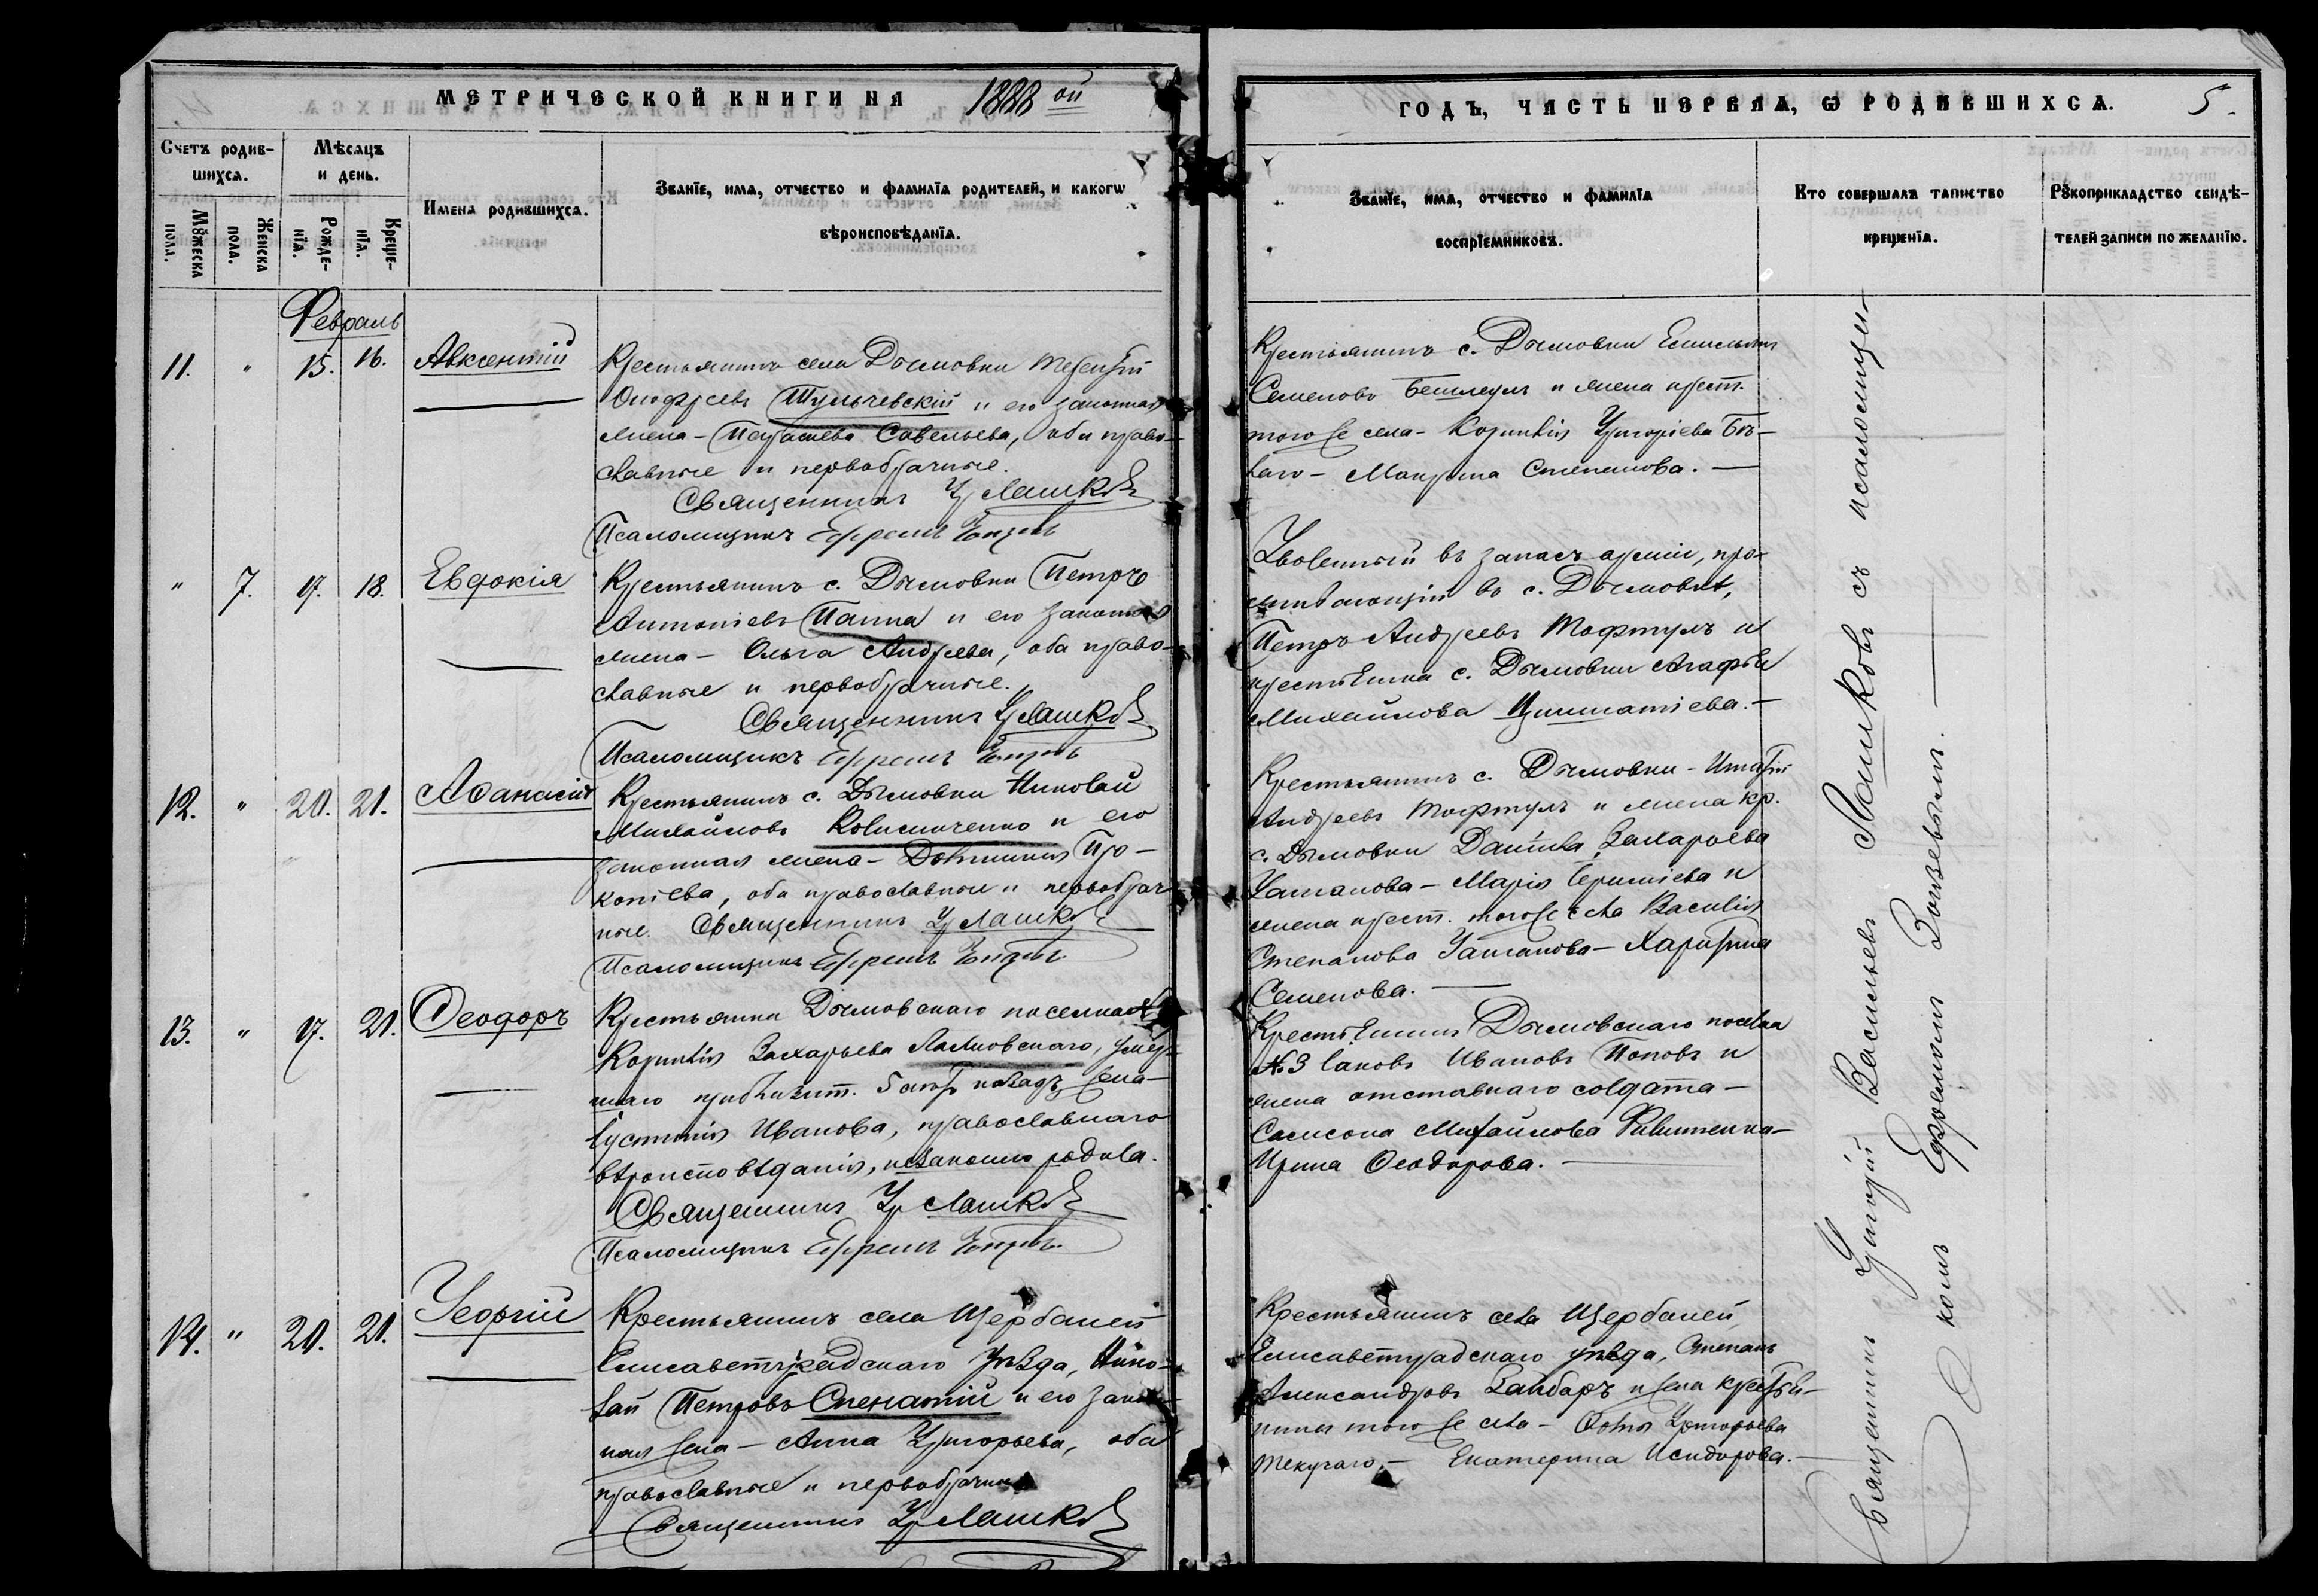 МЕТРИЧЕСКОЙ КНИГИ НА 1888 ой
ГОДЪ, ЧАСТЬ ПЕРВАЯ, Ѡ РОДИВШИХСЯ. 5.
Счетъ родив-
шихся.
Мѣсяцъ
и день.
Мꙋжеска
пола.
Женска
пола.
Рожде-
нїя.
Креще-
нїя.
Имена родившихся.
Званїе, имя, отчество и фамилїя родителей, и какогѡ
вѣроисповѣданїя.
Званїе, имя, отчество и фамилїя
воспрїемниковъ.
Кто совершалъ таинство
крещенїя.
Рꙋкоприкладство свидѣ-
телей записи по желанїю.
Февраль
11. " 15. 16. Авксентій
Крестьянинъ села Дымовки Терентій
Онофріевъ Тульчевскій и его законная
жена - Параскева Савельева, оба право-
славные и первобрачные.
Священникъ Гр Лашковъ
Псаломщикъ Ефремъ
Крестьянинъ с. Дымовки
Семеновъ Бешлеулъ и жена крест.
того же села - Корнилія Григоріева Бѣ-
лаго - Макрина Степанова. —
" 7. 17. 18. Евдокія
Крестьянинъ с. Дымовки Петръ
Антоніевъ Папна и его законная
жена - Ольга Андреева, оба право-
славные и первобрачные.
Священникъ Гр Лашковъ
Псаломщикъ Ефремъ
Уволенный въ запасъ арміи, про-
живающій въ с. Дымовкѣ,
Петръ Андреевъ Мафтулъ и
крестьянка с. Дымовки Агафья
Михайлова —
12. " 20. 21. Аѳанасій
Крестьянинъ с. Дымовки Николай
Михайловъ и его
законная жена - Домникія Про-
копіева, оба православные и первобрач-
ные. Священникъ Гр Лашковъ
Псаломщикъ Ефремъ
Крестьянинъ с. Дымовки - Игнатій
Андреевъ Мафтулъ и жена кр.
с. Дымовки Даніила Захарьева
Уатанова - Марія и
жена крест. того же села Василія
Степанова Уатанова - Харитина
Семенова. —
13. " 17. 21. Ѳеодоръ
Крестьянка Дымовскаго поселка
Корнилія Захарьева умер-
шаго приблизит. 5 лѣтъ назадъ жена -
Іустинія Иванова, православнаго
вѣроисповѣданія, незаконно родила.
Священникъ Гр Лашковъ
Псаломщикъ Ефремъ
Крестьянинъ Дымовскаго поселка
№3 Іаковъ Ивановъ Поповъ и
жена отставнаго солдата -
Самсона Михайлова Филипенка -
Ирина Ѳеодорова. —
14. " 20. 21. Георгій
Крестьянинъ села Щербаней
Елисаветградскаго уѣзда, Нико-
лай Петровъ Спенатій и его закон-
ная жена - Анна Григорьева, оба
православные и первобрачные
Священникъ Гр Лашковъ
Крестьянинъ села Щербаней,
Елисаветградскаго уѣзда, Степанъ
Александровъ Вайбаръ и жена крестья-
нина того же села - Ѳомы Григорьева
Текучаго, - Екатерина Исидорова. —
Священникъ Григорій Васильевъ Лашковъ съ псаломщи-
комъ Ефремомъ —